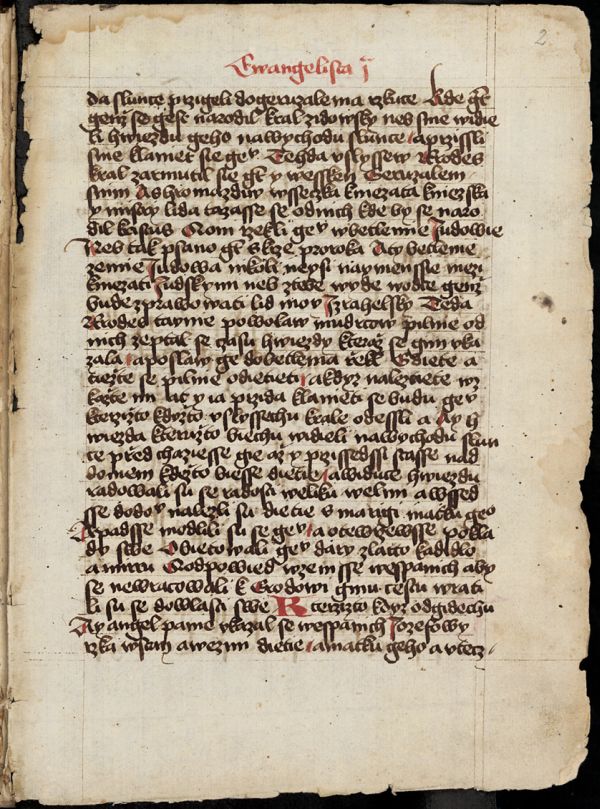 2
Ewangelista j
da slunce przigeli dogeruzalema rzkuce Kde gt
genz se gest narodil kral zidowsky neb sme widie
li hwiezdu geho nawychodu slunce aprzissli
sme klaniet sie gey Tehda uslyssew Erodes
kral zarmutil sie gt y wessken Jeruzalem
snim Ashromazdiw wssecka kniezata kniezska
y mistry lida tazasse se odnich kde by se naro
dil kristus Oni rzekli gey wbetlemie Judowie
Neb tak psano gt skrze proroka A ty betleme
zemie Judowa nikoli neysi naymenssie mezi
kniezati Judskymi neb ztebe wyde wodce genz
bude zprawowati lid moy Izrahelsky Teda
Erodes taynie powolaw mudrcow pilnie od
nich zeptal se czasu hwiezdy kteraz se gim uka
zala aposlaw ge dobetlema rzekl Gdiete a
tiezte se pilnie odietieti akdyz naleznete wz
kazte mi at y ia przida klanieti se budu gey
kterzizto kdyzto uslyssechu krale odessli a Ay h
wiezda kteruzto biechu widieli nawychodu slun
ce przed chaziesse gie az y przissedssi stasse nad
domem kdezto biesse dietie awiduce hwiezdu
radowali su se radosti weliku welmi awssed
sse dodomu nalezli su dietie s marigi matku geo
Apadsse modlili su se gey aotewrzewsse pokla
dy swe Obietowali gey dary zlatto kadidlo
amirru Aodpowied wzemsse wespanich aby
se newracowali k Erodowi ginu cestu wrati
li su se dowlasti swe Kterzizto kdyz odgidechu
Ay angel panie ukazal se wespanich Jozefowy
rzka wstan awezmi dietie amatku geho autecz